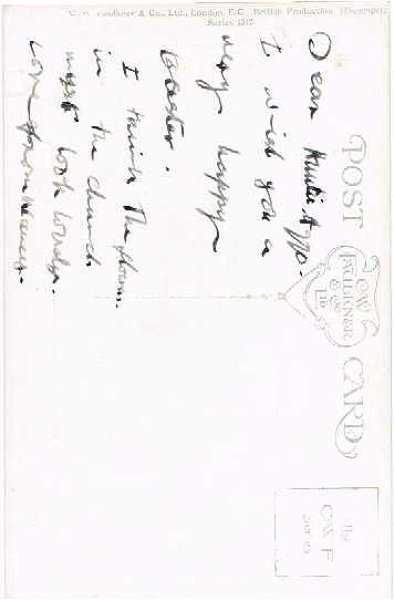 C. W. Faulkner & Co., Ltd., London, E.C. British Production (Decempet).
Series 1317
POST CARD
C.W.
FAULKNER
& CO
LTD
The
C.W.F
Series
Dear Auntie
I wish you a
very happy
Easter.
I think the flowers
in the church
must look lovely.
Love from